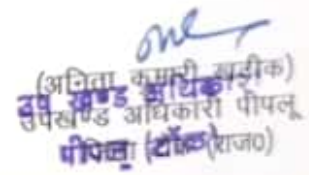 (अनिता कुमारी खटीक)
उप खण्ड अधिकारी
उपखण्ड अधिकारी पीपलू
पीपलू (टोंक)
(राज0)